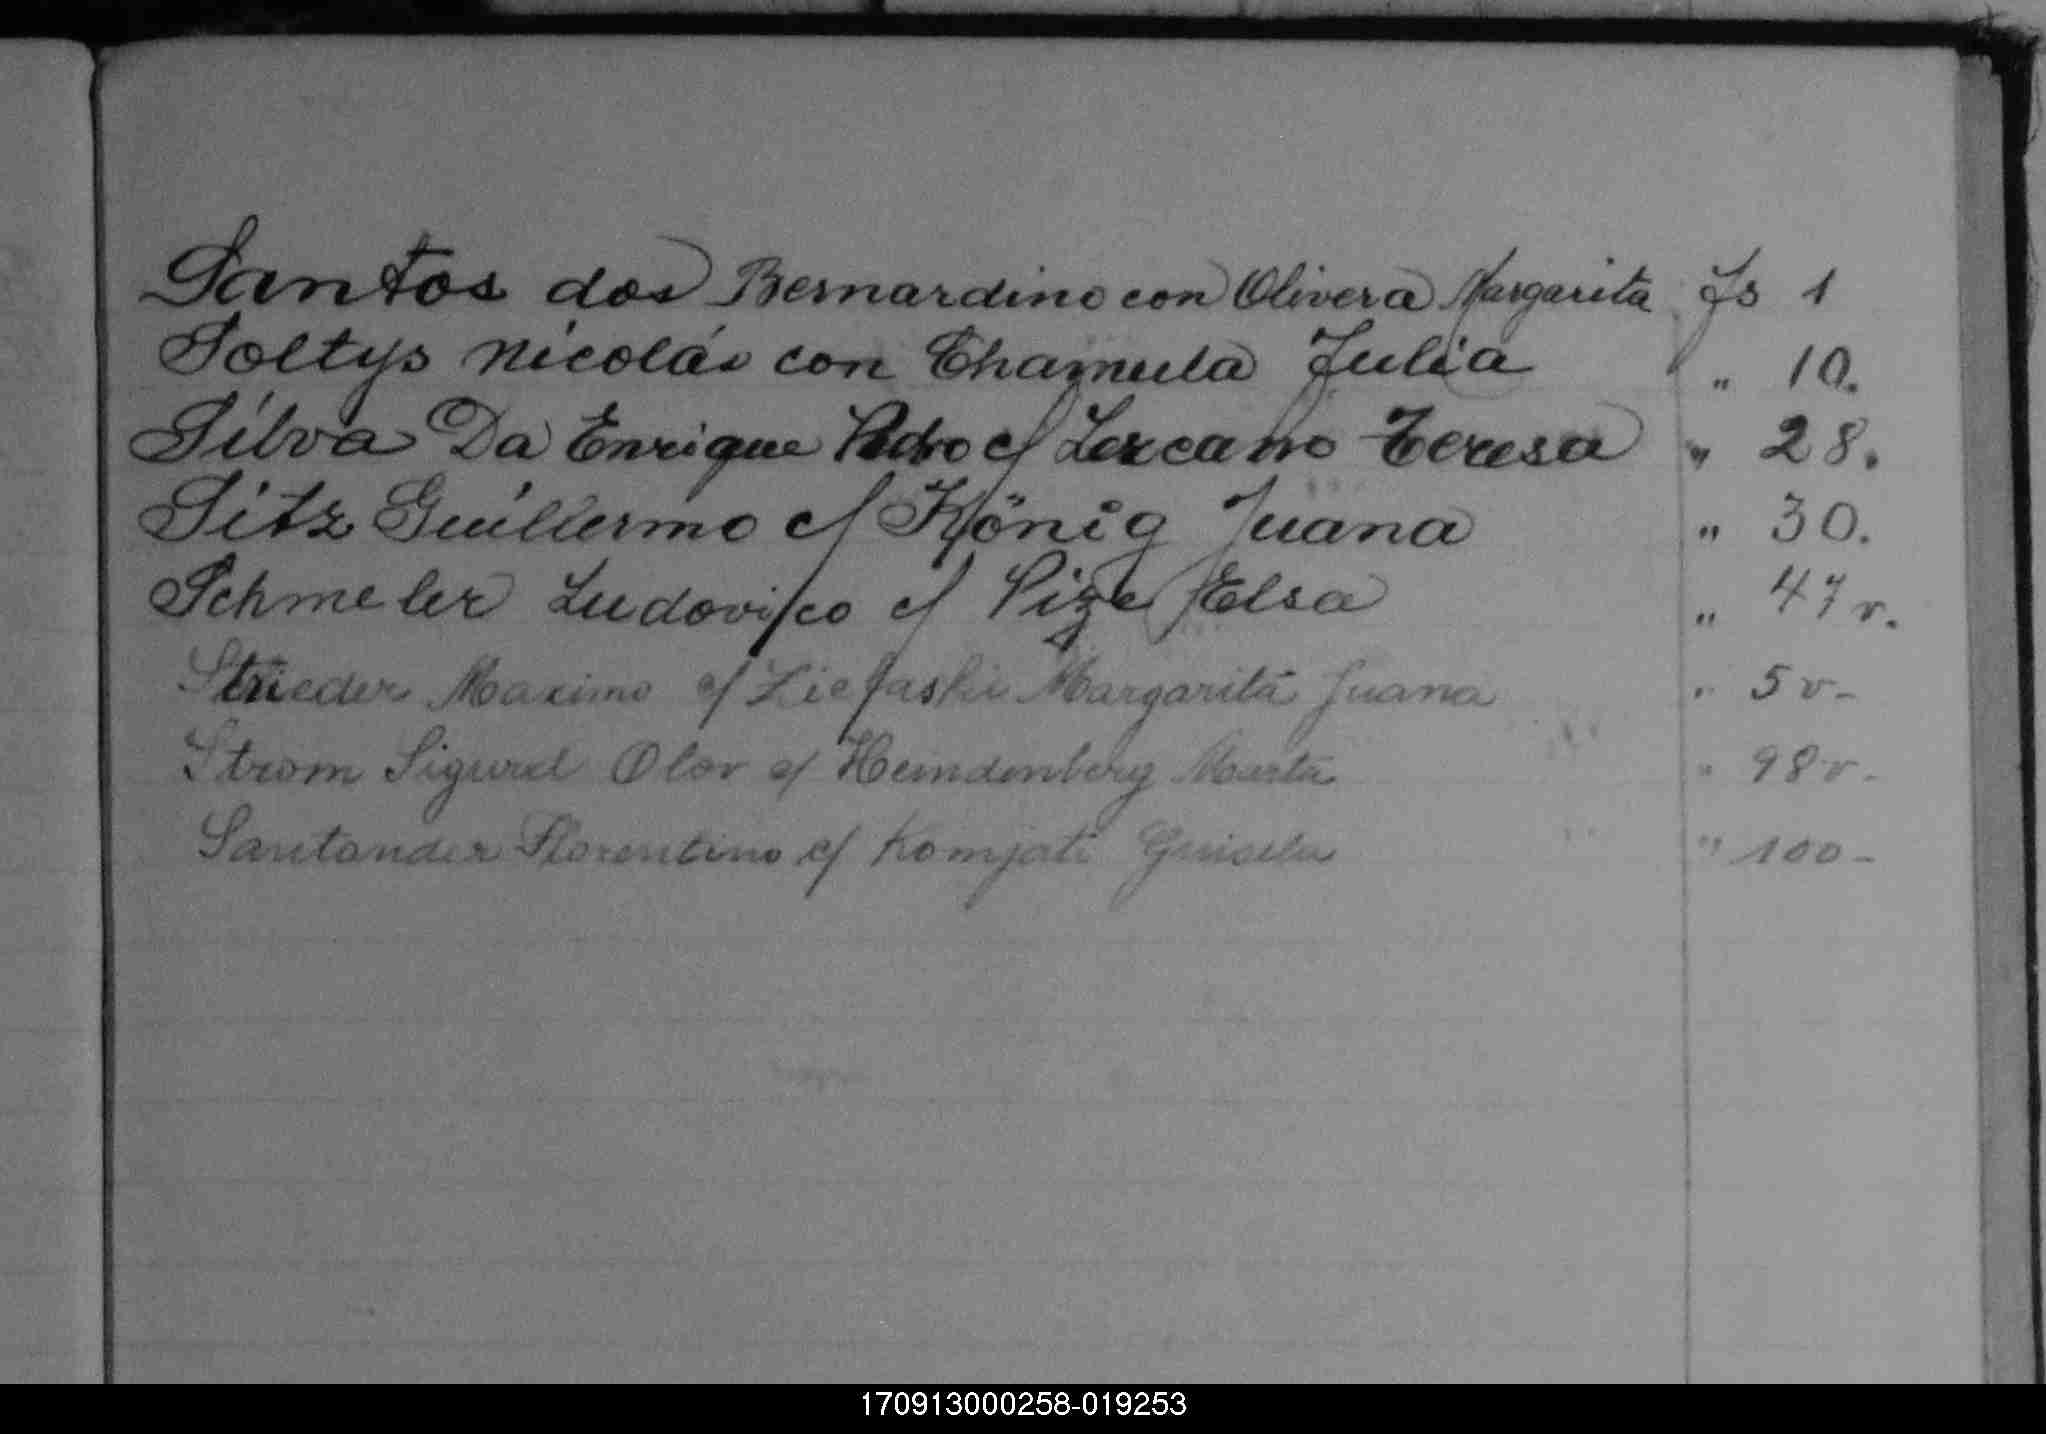 Santos dos Bernardino con Olivera Margarita Fs 1
Soltys Nicolás con Chamula Julia " 10.
Silva Da Enrique Pedro c/ Lezcano Teresa " 28.
Sitz Guillermo c/ König Juana " 30.
Schmeler Ludovico c/ Pize Elsa " 47 v.
Strieder Maximo c/ Margarita Juana " 5 v-
Strom Sigurd Olov c/ Marta " 98 v-
Santander Florentino c/ Komjati Guisela " 100-
170913000258-019253